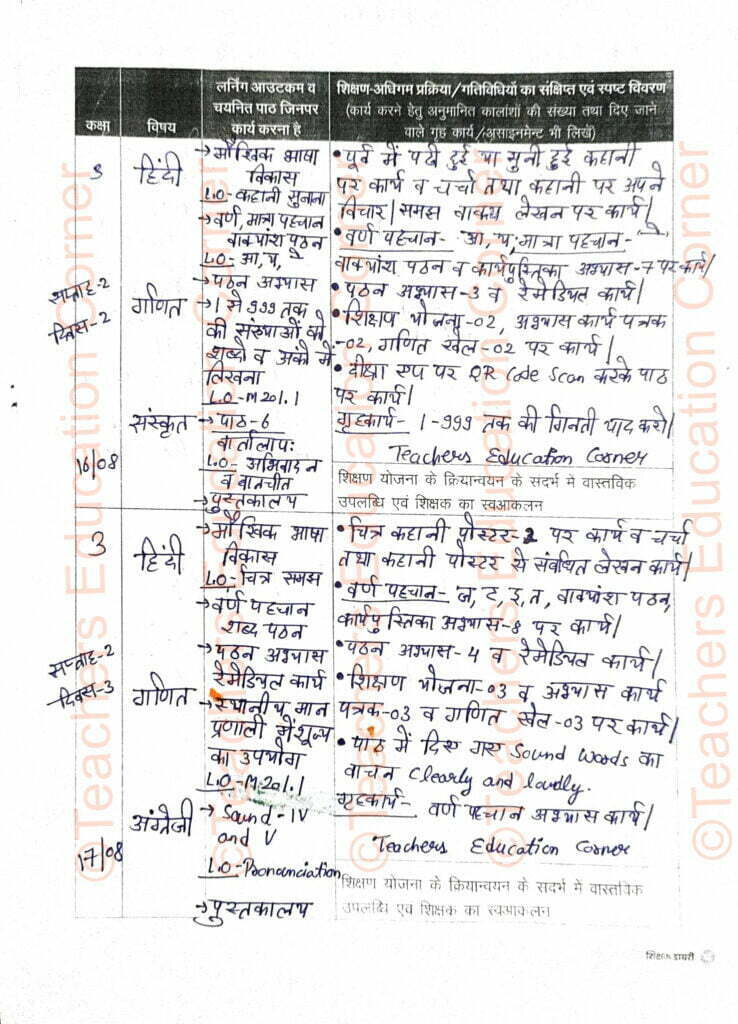 कक्षा
विषय
लर्निंग आउटकम व
चयनित पाठ जिनपर
कार्य करना है
शिक्षण-अधिगम प्रक्रिया/गतिविधियों का संक्षिप्त एवं स्पष्ट विवरण
(कार्य करने हेतु अनुमानित कालांशों की संख्या तथा दिए जाने
वाले गृह कार्य/असाइनमेन्ट भी लिखें)
3
सप्ताह-2
दिवस-2
16/08
हिंदी
→मौखिक भाषा
विकास
L.O-कहानी सुनाना
→वर्ण, मात्रा पहचान
वाक्यांश पठन
L.O- आ, प, ै
→पठन अभ्यास
गणित
→1 से 999 तक
की संख्याओं को
शब्दों व अंको में
लिखना
L.O-M201.1
संस्कृत
→पाठ-6
वार्तालापः
L.O- अभिवादन
व बातचीत
→पुस्तकालय
•पूर्व में पढ़ी हुई या सुनी हुई कहानी
पर कार्य व चर्चा तथा कहानी पर अपने
विचार/समझ वाक्य लेखन पर कार्य|
•वर्ण पहचान- आ, प, मात्रा पहचान- ै
वाक्यांश पठन व कार्यपुस्तिका अभ्यास-7 पर कार्य|
•पठन अभ्यास-3 व रेमेडियल कार्य|
•शिक्षण योजना-02, अभ्यास कार्य पत्रक
-02, गणित खेल-02 पर कार्य|
•दीक्षा एप पर QR Code Scan करके पाठ
पर कार्य|
गृहकार्य- 1-999 तक की गिनती याद करो|
Teachers Education Corner
शिक्षण योजना के क्रियान्वयन के सदर्भ मे वास्तविक
उपलब्धि एवं शिक्षक का स्वआकलन
3
सप्ताह-2
दिवस-3
17/08
हिंदी
→मौखिक भाषा
विकास
L.O-चित्र समझ
→वर्ण पहचान
शब्द पठन
→पठन अभ्यास
रेमेडियल कार्य
गणित
→स्थानीय मान
प्रणाली में शून्य
का उपयोग
L.O-M201.1
अंग्रेजी
→ Sound-IV
and V
L.O-Pronanciation
→पुस्तकालय
•चित्र कहानी पोस्टर-2 पर कार्य व चर्चा
तथा कहानी पोस्टर से संबंधित लेखन कार्य|
•वर्ण पहचान- ज, ट, इ, त, वाक्यांश पठन,
कार्यपुस्तिका अभ्यास-8 पर कार्य|
•पठन अभ्यास-4 व रेमेडियल कार्य|
•शिक्षण योजना-03 व अभ्यास कार्य
पत्रक-03 व गणित खेल-03 पर कार्य|
•पाठ में दिए गए Sound Words का
वाचन Clearly and loudly.
गृहकार्य- वर्ण पहचान अभ्यास कार्य|
Teachers Education Corner
शिक्षण योजना के क्रियान्वयन के सदर्भ मे वास्तविक
उपलब्धि एवं शिक्षक का स्वआकलन
शिक्षक डायरी
©Teachers Education Corner
©Teachers Education Corner
©Teachers Education Corner
©Teachers Education Corner
©Teachers Education Corner